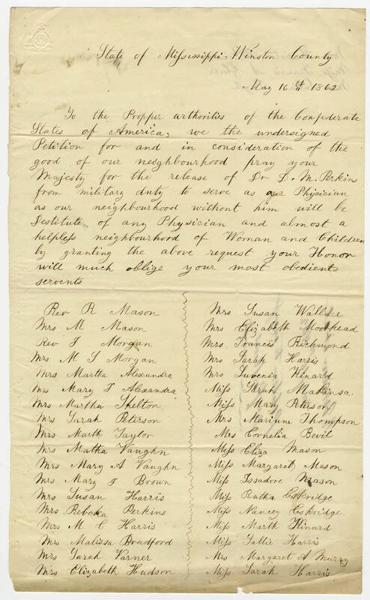 State of Mississippi Winston County
May 10th 1862
To the Propper authorities of the Confederate
States of America, we the undersigned
Petition for and in consideration of the
good of our neighbourhood pray your
Majesty for the release of Dr L. M. Perkins
from military duty to serve as our Physician
as our neighbourhood without him will be
destitute of any Physician and almost a
helpless neighbourhood of Woman and Children
by granting the above request your Honor
will much oblige your most obedient
servents
Rev R Mason
Mrs M Mason
Rev T Morgan
Mrs M T Morgan
Mrs Martha Alexandra
Mrs Mary T Alexandra
Mrs Martha Skelton
Mrs Sarah Peterson
Mrs Marth Taylor
Mrs Matha Vaughn
Mrs Mary A Vaughn
Mrs Mary T Brown
Mrs Susan Harris
Mrs Rebeka Perkins
Mrs M C Harris
Mrs Malissa Bradford
Mrs Sarah Varner
Mrs Elizabeth Hudson
Mrs Susan Wallace
Mrs Elizabeth Moorhead
Mrs Francis Richmond
Mrs Sarah Harris
Mrs Luvenia Hinard
Miss Sarah
Miss Mary Peterson
Mrs Mariann Thompson
Mrs Cornelia Bevil
Miss Eliza Mason
Miss Margaret Mason
Miss Issadore Mason
Miss Eskridge
Miss Nancey Eskridge
Miss Marth Hinard
Miss Sallie Harris
Mrs Margaret A Murry
Miss Sarah Harris